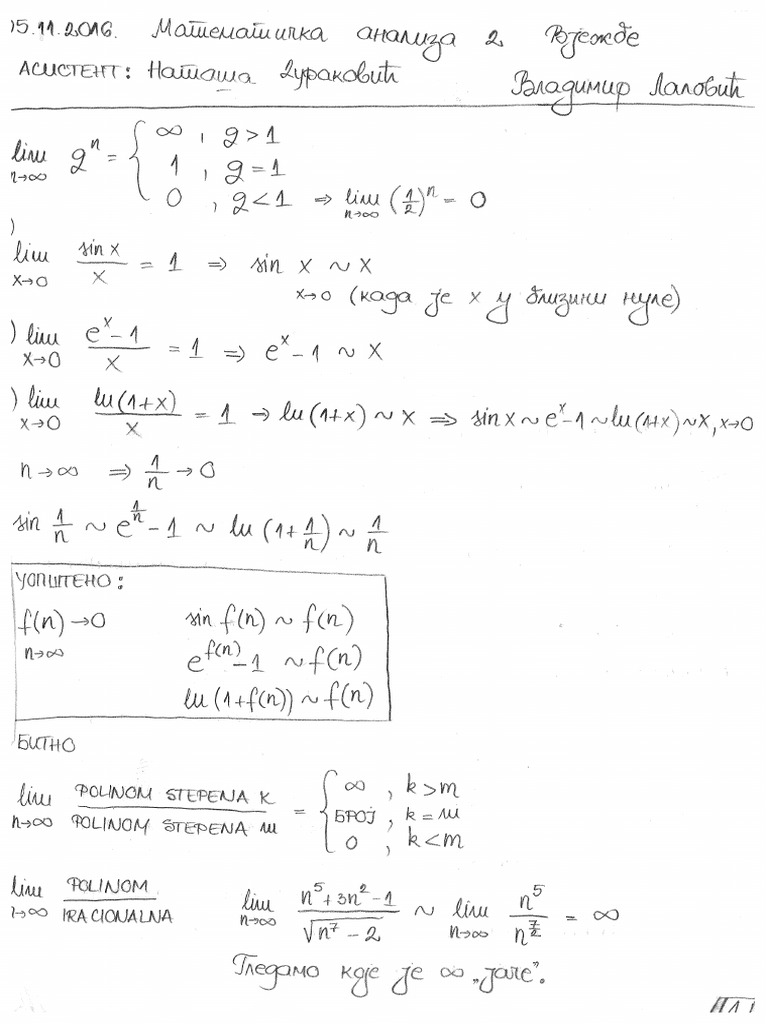 15.11.2016. Математичка анализа 2 Вјежбе
АСИСТЕНТ: Наташа Ђураковић Владимир Лаловић
lim n→∞ q^n = { ∞, q>1
1, q=1
0, q<1 ⇒ lim n→∞ (1/2)^n = 0
) lim x→0 sin x / x = 1 ⇒ sin x ~ x
x→0 (када је x у близини нуле)
) lim x→0 (e^x - 1) / x = 1 ⇒ e^x - 1 ~ x
) lim x→0 ln(1+x) / x = 1 → ln(1+x) ~ x ⇒ sin x ~ e^x - 1 ~ ln(1+x) ~ x, x→0
n→∞ ⇒ 1/n → 0
sin 1/n ~ e^(1/n) - 1 ~ ln(1 + 1/n) ~ 1/n
УОПШТЕНО:
f(n) → 0 sin f(n) ~ f(n)
n→∞ e^f(n) - 1 ~ f(n)
ln(1+f(n)) ~ f(n)
БИТНО
lim n→∞ POLINOM STEPENA K / POLINOM STEPENA m = { ∞, k>m
БРОЈ, k=m
0, k<m
lim n→∞ POLINOM / IRACIONALNA lim n→∞ (n^5 + 3n^2 - 1) / √(n^7 - 2) ~ lim n→∞ n^5 / n^(7/2) = ∞
Гледамо које је ∞ „јаче“.